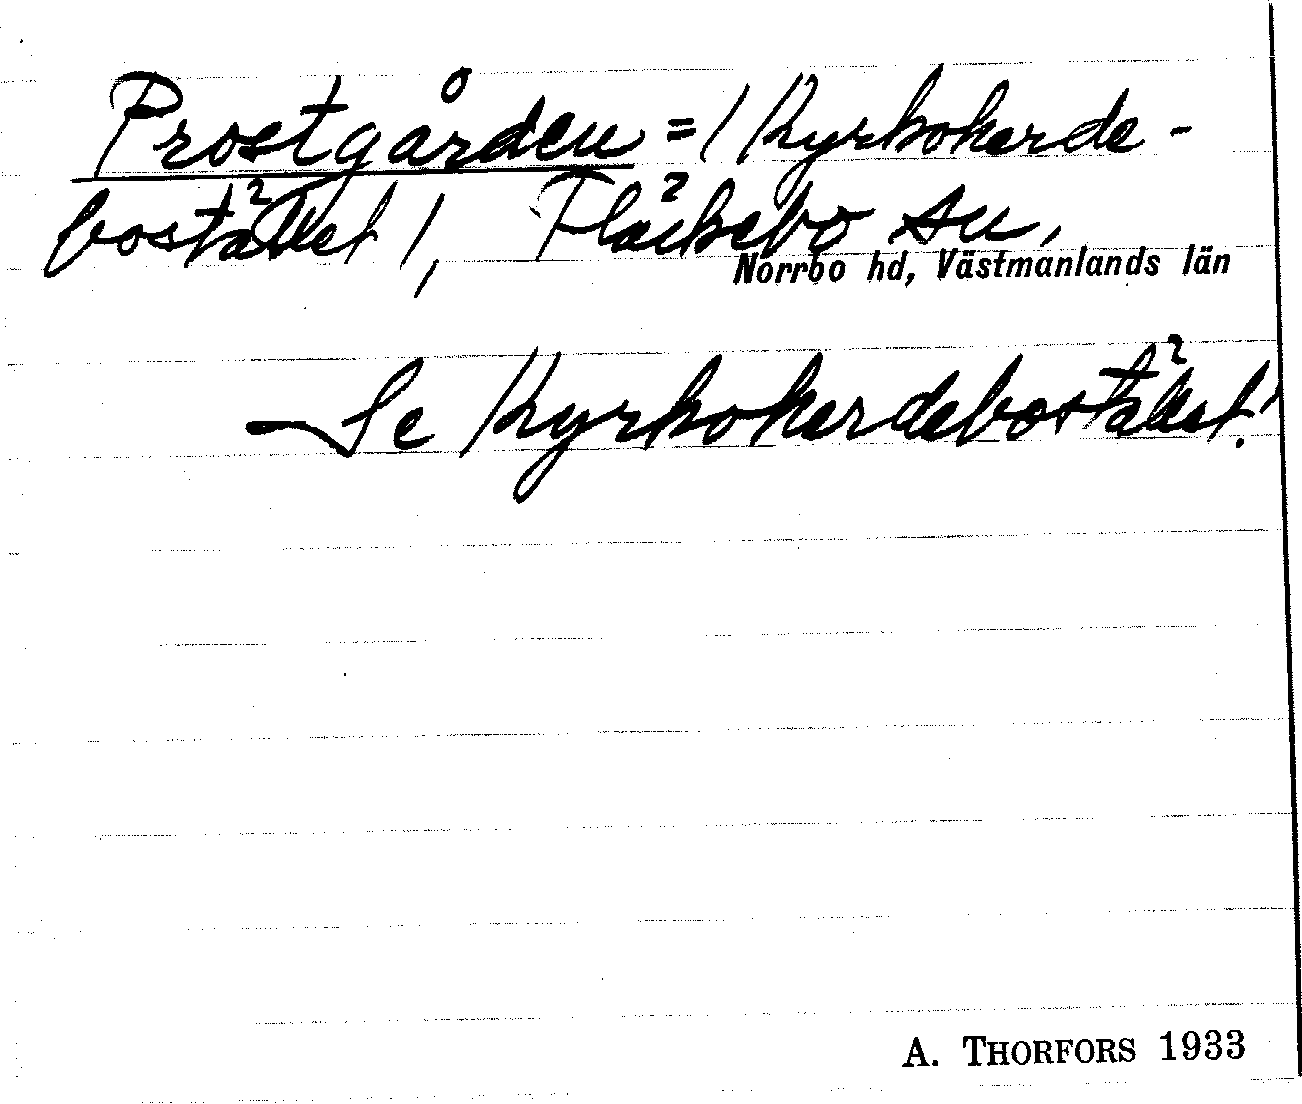 Prostgården = /Kyrkoherde-
bostället/, Fläckebo sn,
Norrbo hd, Västmanlands län
Se Kyrkoherdebostället!
A. THORFORS 1933